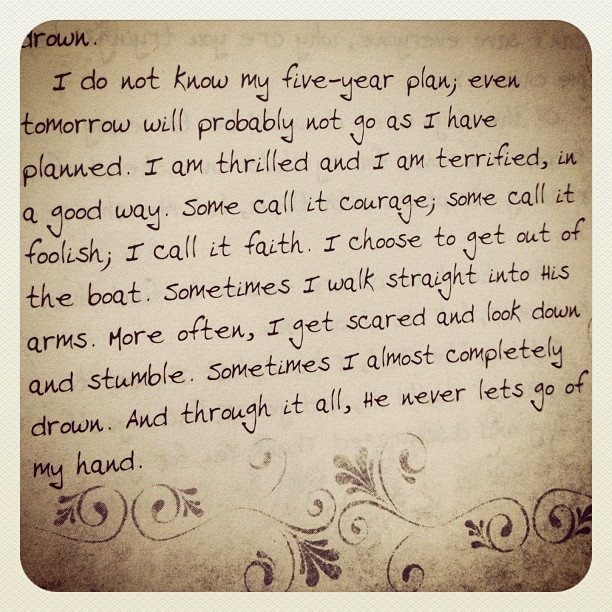 drown.
I do not know my five-year plan; even
tomorrow will probably not go as I have
planned. I am thrilled and I am terrified, in
a good way. Some call it courage; some call it
foolish; I call it faith. I choose to get out of
the boat. Sometimes I walk straight into His
arms. More often, I get scared and look down
and stumble. Sometimes I almost completely
drown. And through it all, He never lets go of
my hand.